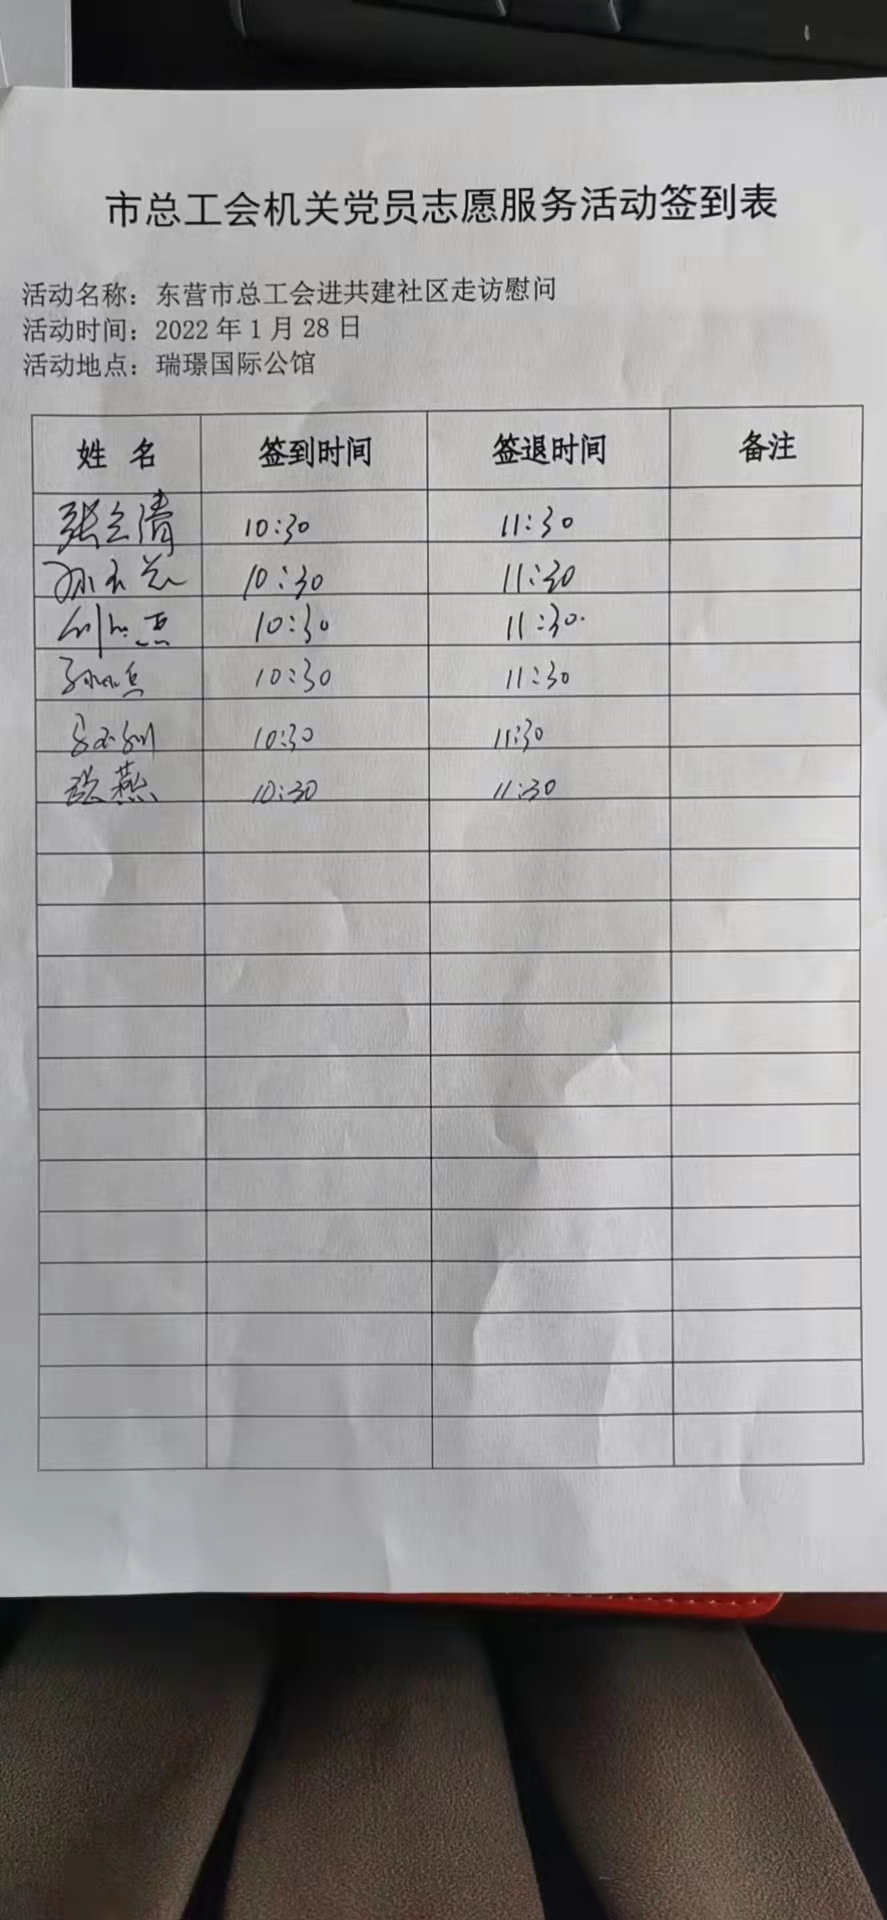 市总工会机关党员志愿服务活动签到表
活动名称：东营市总工会进共建社区走访慰问
活动时间：2022年1月28日
活动地点：瑞璟国际公馆
姓 名 签到时间 签退时间 备注
张立清 10:30 11:30
10:30 11:30
10:30 11:30
10:30 11:30
10:30 11:30
燕 10:30 11:30